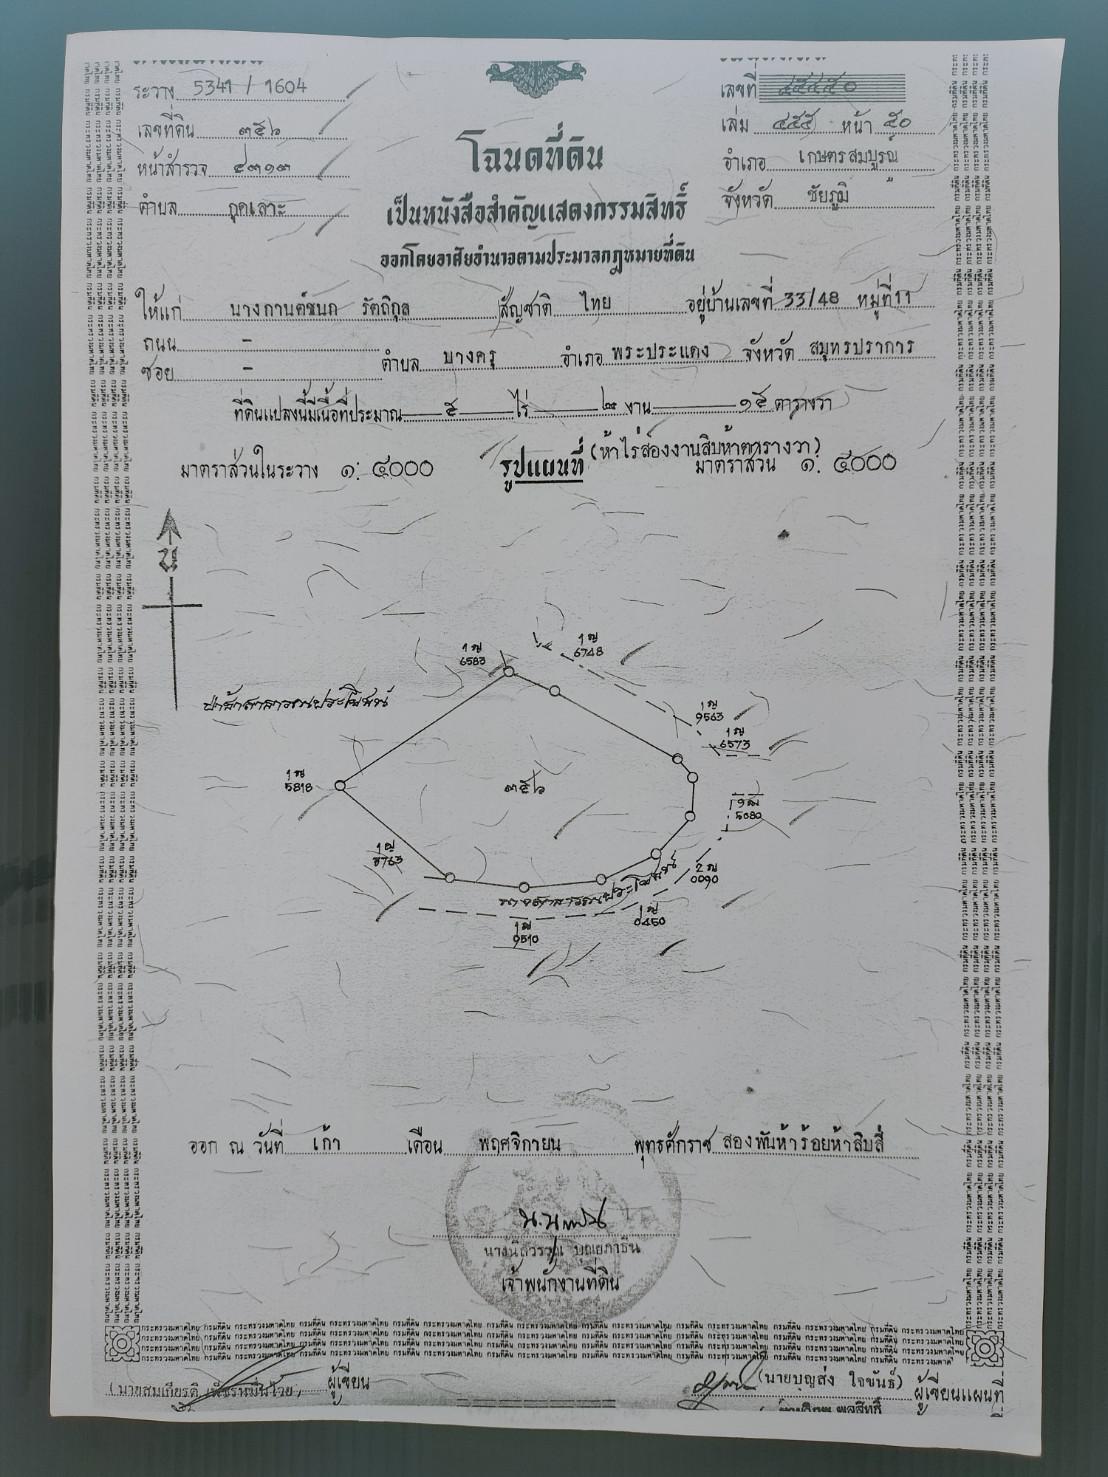 ระวาง 5341 / 1604
เลขที่ ๔๕๔๕๐
เลขที่ดิน ๓๕๖
เล่ม ๔๕๕ หน้า ๕๐
หน้าสำรวจ ๔๓๑๓
อำเภอ เกษตรสมบูรณ์
ตำบล กุดเลาะ
จังหวัด ชัยภูมิ
โฉนดที่ดิน
เป็นหนังสือสำคัญแสดงกรรมสิทธิ์
ออกโดยอาศัยอำนาจตามประมวลกฎหมายที่ดิน
ให้แก่ นางกานต์ชนก รัตถิกุล สัญชาติ ไทย อยู่บ้านเลขที่ 33/48 หมู่ที่ 11
ถนน -
ซอย - ตำบล บางครุ อำเภอ พระประแดง จังหวัด สมุทรปราการ
ที่ดินแปลงนี้มีเนื้อที่ประมาณ ๕ ไร่ ๒ งาน ๑๕ ตารางวา
(ห้าไร่สองงานสิบห้าตารางวา)
มาตราส่วนในระวาง ๑: ๔๐๐๐ รูปแผนที่ มาตราส่วน ๑: ๔๐๐๐
น
1 ญ
6583
1 ญ
6748
ป่าช้าสาธารณประโยชน์
1 ญ
9563
1 ญ
6573
1 ญ
5818
๓๕๖
5680
1 ญ
8763
2 ญ
0090
ทางสาธารณประโยชน์
1 ญ
0450
1 ญ
9510
ออก ณ วันที่ เก้า เดือน พฤศจิกายน พุทธศักราช สองพันห้าร้อยห้าสิบสี่
เจ้าพนักงานที่ดิน
ผู้เขียน
(นายบุญส่ง ใจขันธ์) ผู้เขียนแผนที่